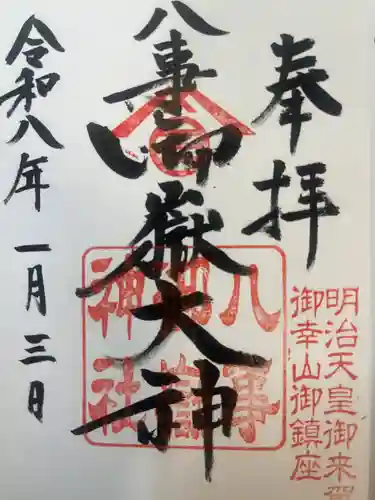 奉拝
八事山御嶽大神
八事
御嶽
神社
明治天皇御来賀
御幸山御鎮座
令和八年 一月三日